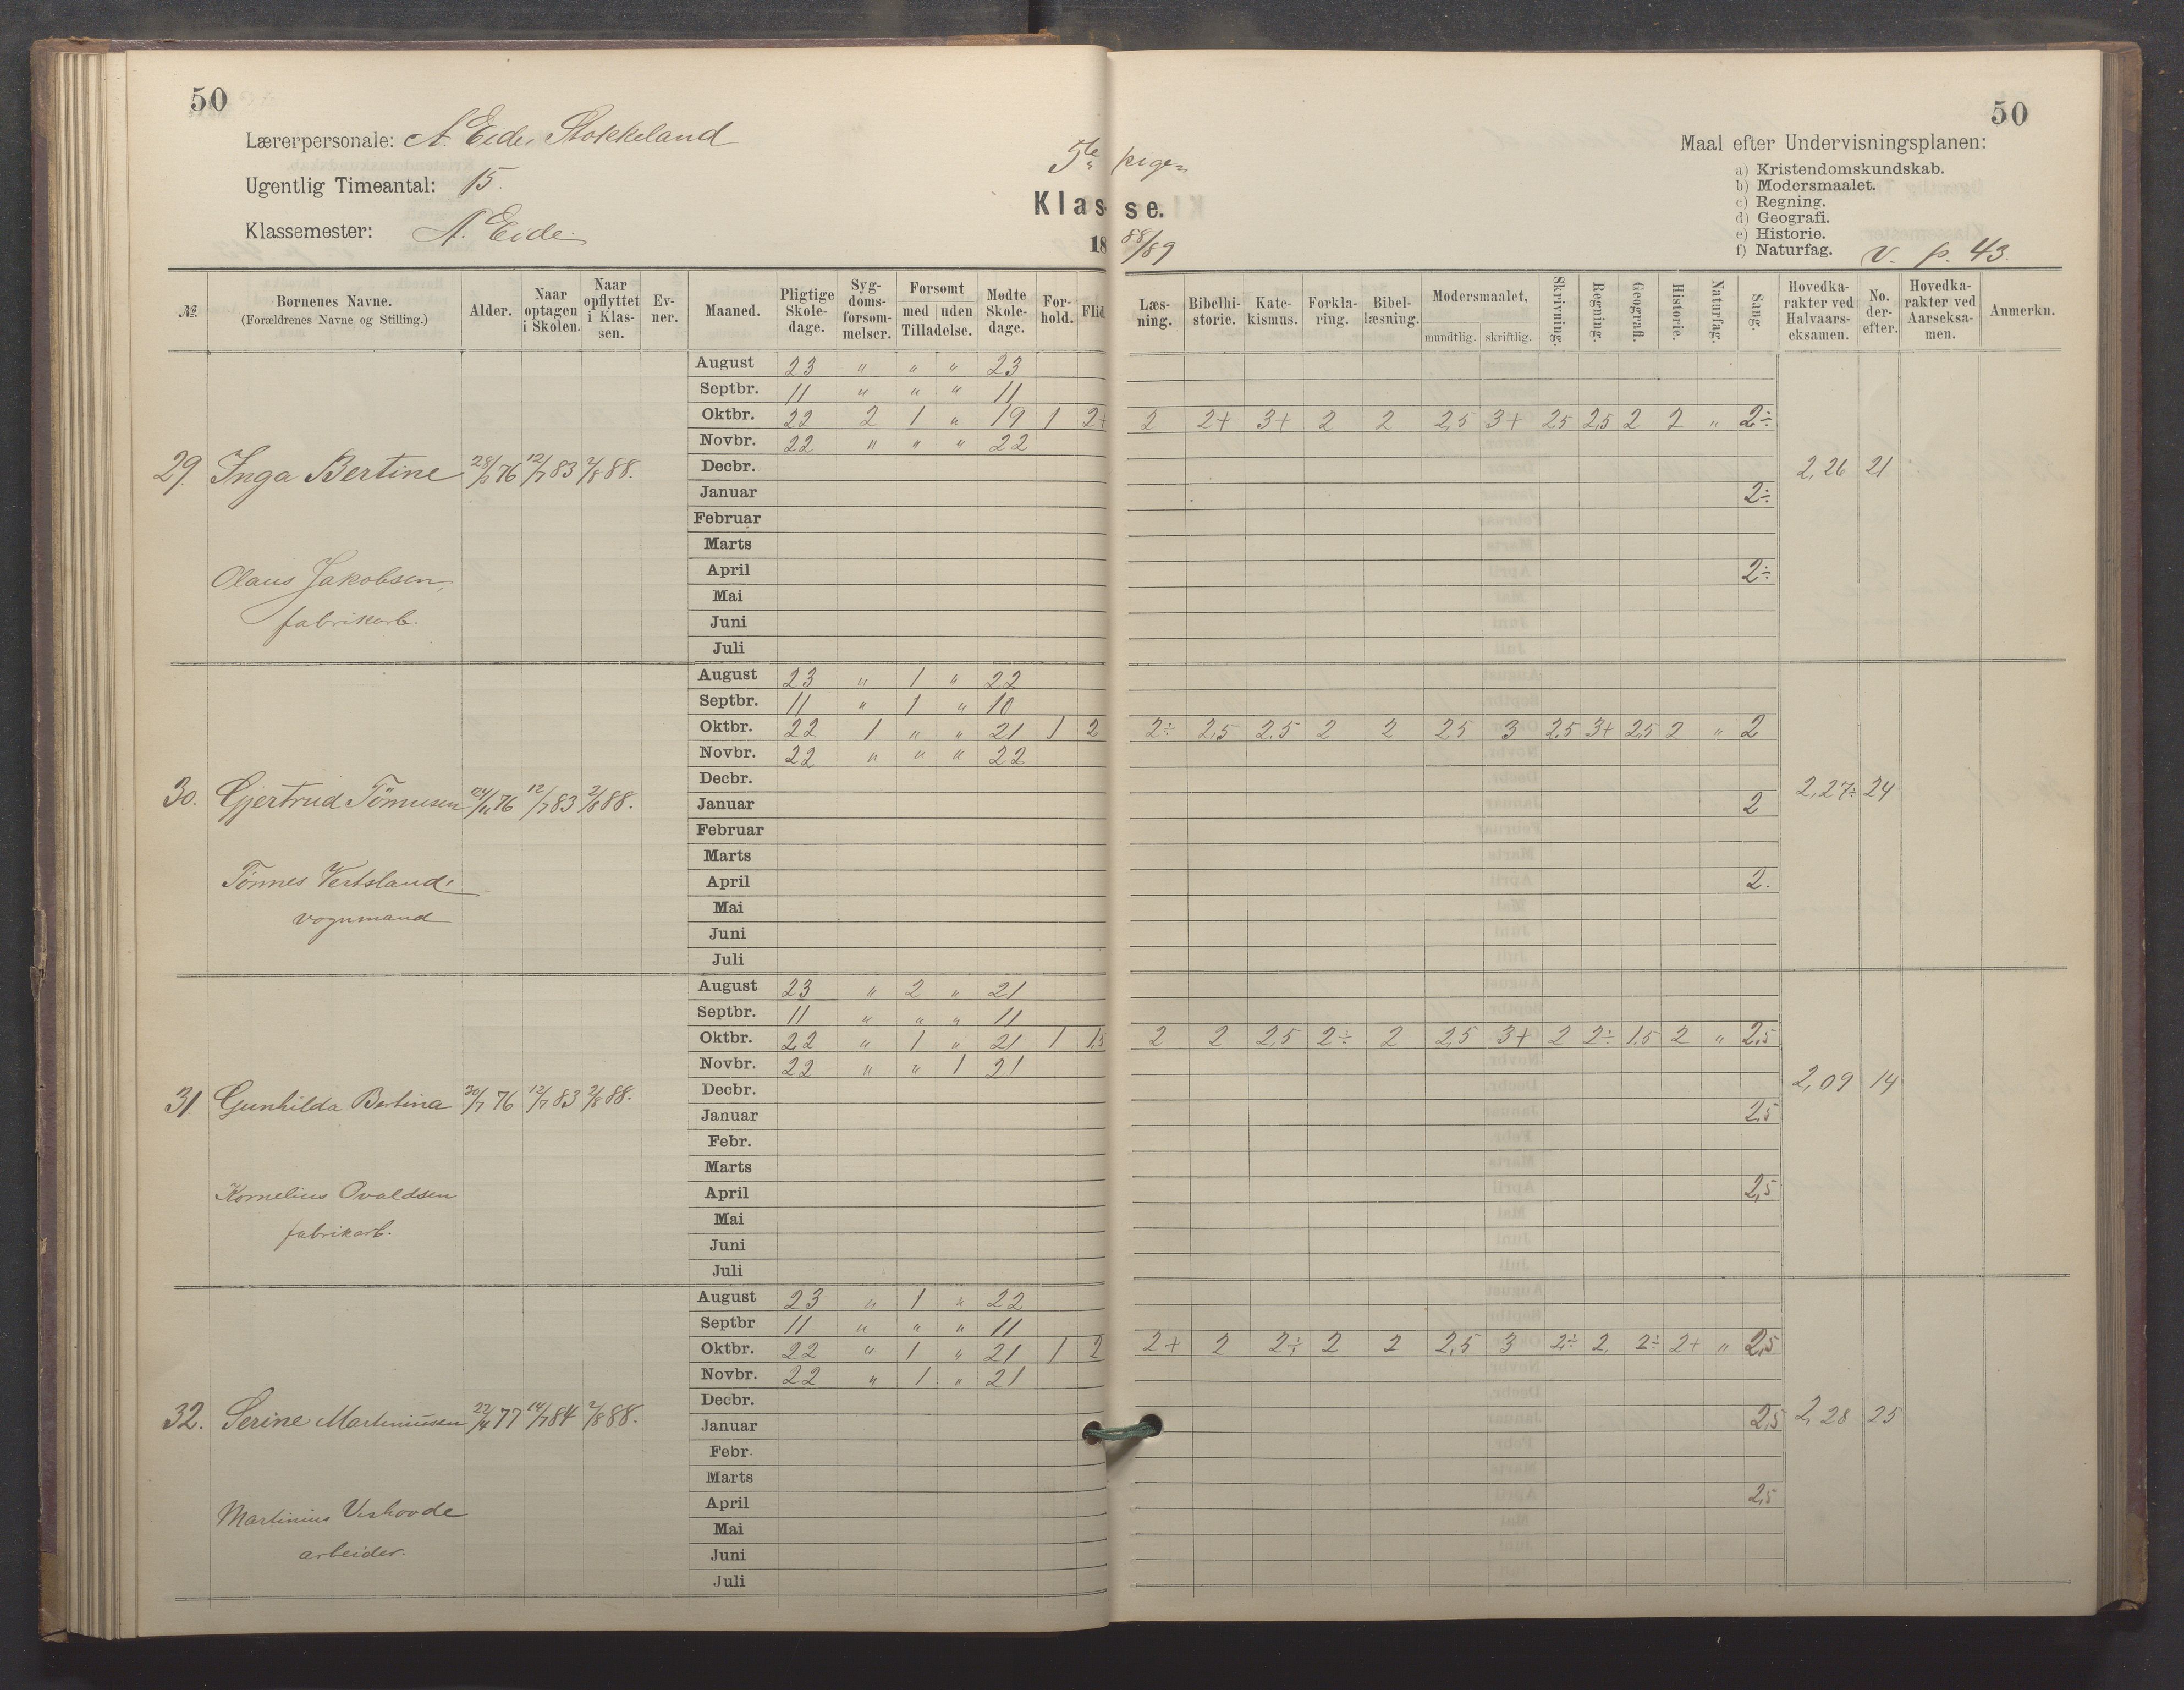 50
50
Lærerpersonale: A. Eide, Stokkeland
Ugentlig Timeantal: 15.
Klassemester: A. Eide.
5te pige-
Klasse.
18 88/89
Maal efter Undervisningsplanen:
a) Kristendomskundskab.
b) Modersmaalet.
c) Regning.
d) Geografi.
e) Historie.
f) Naturfag. V. p. 43.
№ Børnenes Navne. (Forældrenes Navne og Stilling.) Alder. Naar optagen i Skolen. Naar opflyttet i Klassen. Evner. Maaned. Pligtige Skoledage. Sygdomsforsømmelser. Forsømt med uden Tilladelse. Mødte Skoledage. Forhold. Flid. Læsning. Bibelhistorie. Katekismus. Forklaring. Bibellæsning. Modersmaalet, mundtlig. skriftlig. Skrivning. Regning. Geografi. Historie. Naturfag. Sang. Hovedkarakter ved Halvaarseksamen. No. derefter. Hovedkarakter ved Aarseksamen. Anmerkn.
August 23 " " " 23
Septbr. 11 " " " 11
Oktbr. 22 2 1 " 19 1 2+ 2 2+ 3+ 2 2 2,5 3+ 2,5 2,5 2 2 " 2÷
Novbr. 22 " " " 22
29. Inga Bertine 76 12/7 83 2/8 88. Decbr. 2,26 21
Januar 2÷
Februar
Marts
Olaus Jakobsen, April 2÷
Mai
fabrikarb. Juni
Juli
August 23 " 1 " 22
Septbr. 11 " 1 " 10
Oktbr. 22 1 " " 21 1 2 2÷ 2,5 2,5 2 2 2,5 3 2,5 3+ 2,5 2 " 2
Novbr. 22 " " " 22
Decbr.
30. Gjertrud Tönnesen 24/11 76 12/7 83 2/8 88. Januar 2 2,27÷ 24
Februar
Marts
Tönnes Vestsland, April 2.
vognmand Mai
Juni
Juli
August 23 " 2 " 21
Septbr. 11 " " " 11
Oktbr. 22 " 1 " 21 1 1,5 2 2 2,5 2÷ 2 2,5 3+ 2 2÷ 1.5 2 " 2,5
Novbr. 22 " " 1 21
Decbr. 2,09 14
31. Gunhilda Bertina 30/7 76 12/7 83 2/8 88. Januar 2,5
Febr.
Marts
Kornelius Ovaldsen April 2,5
fabrikarb. Mai
Juni
Juli
August 23 " 1 " 22
Septbr 11 " " " 11
Oktbr. 22 " 1 " 21 1 2 2+ 2 2÷ 2 2 2,5 3 2÷ 2. 2÷ 2+ " 2,5
Novbr. 22 " 1 " 21
Decbr.
32. Serine Martiniusen 22/4 77 14/7 84 2/8 88. Januar 2,5 2,28 25
Febr.
Marts
Martinius Vishovde April 2,5
Mai
arbeider. Juni
Juli